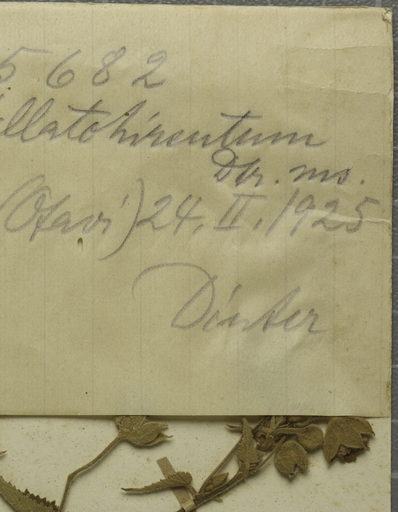 5682
llatohirsutum
Dtr. ms.
(Otavi) 24. II. 1925
Dinter